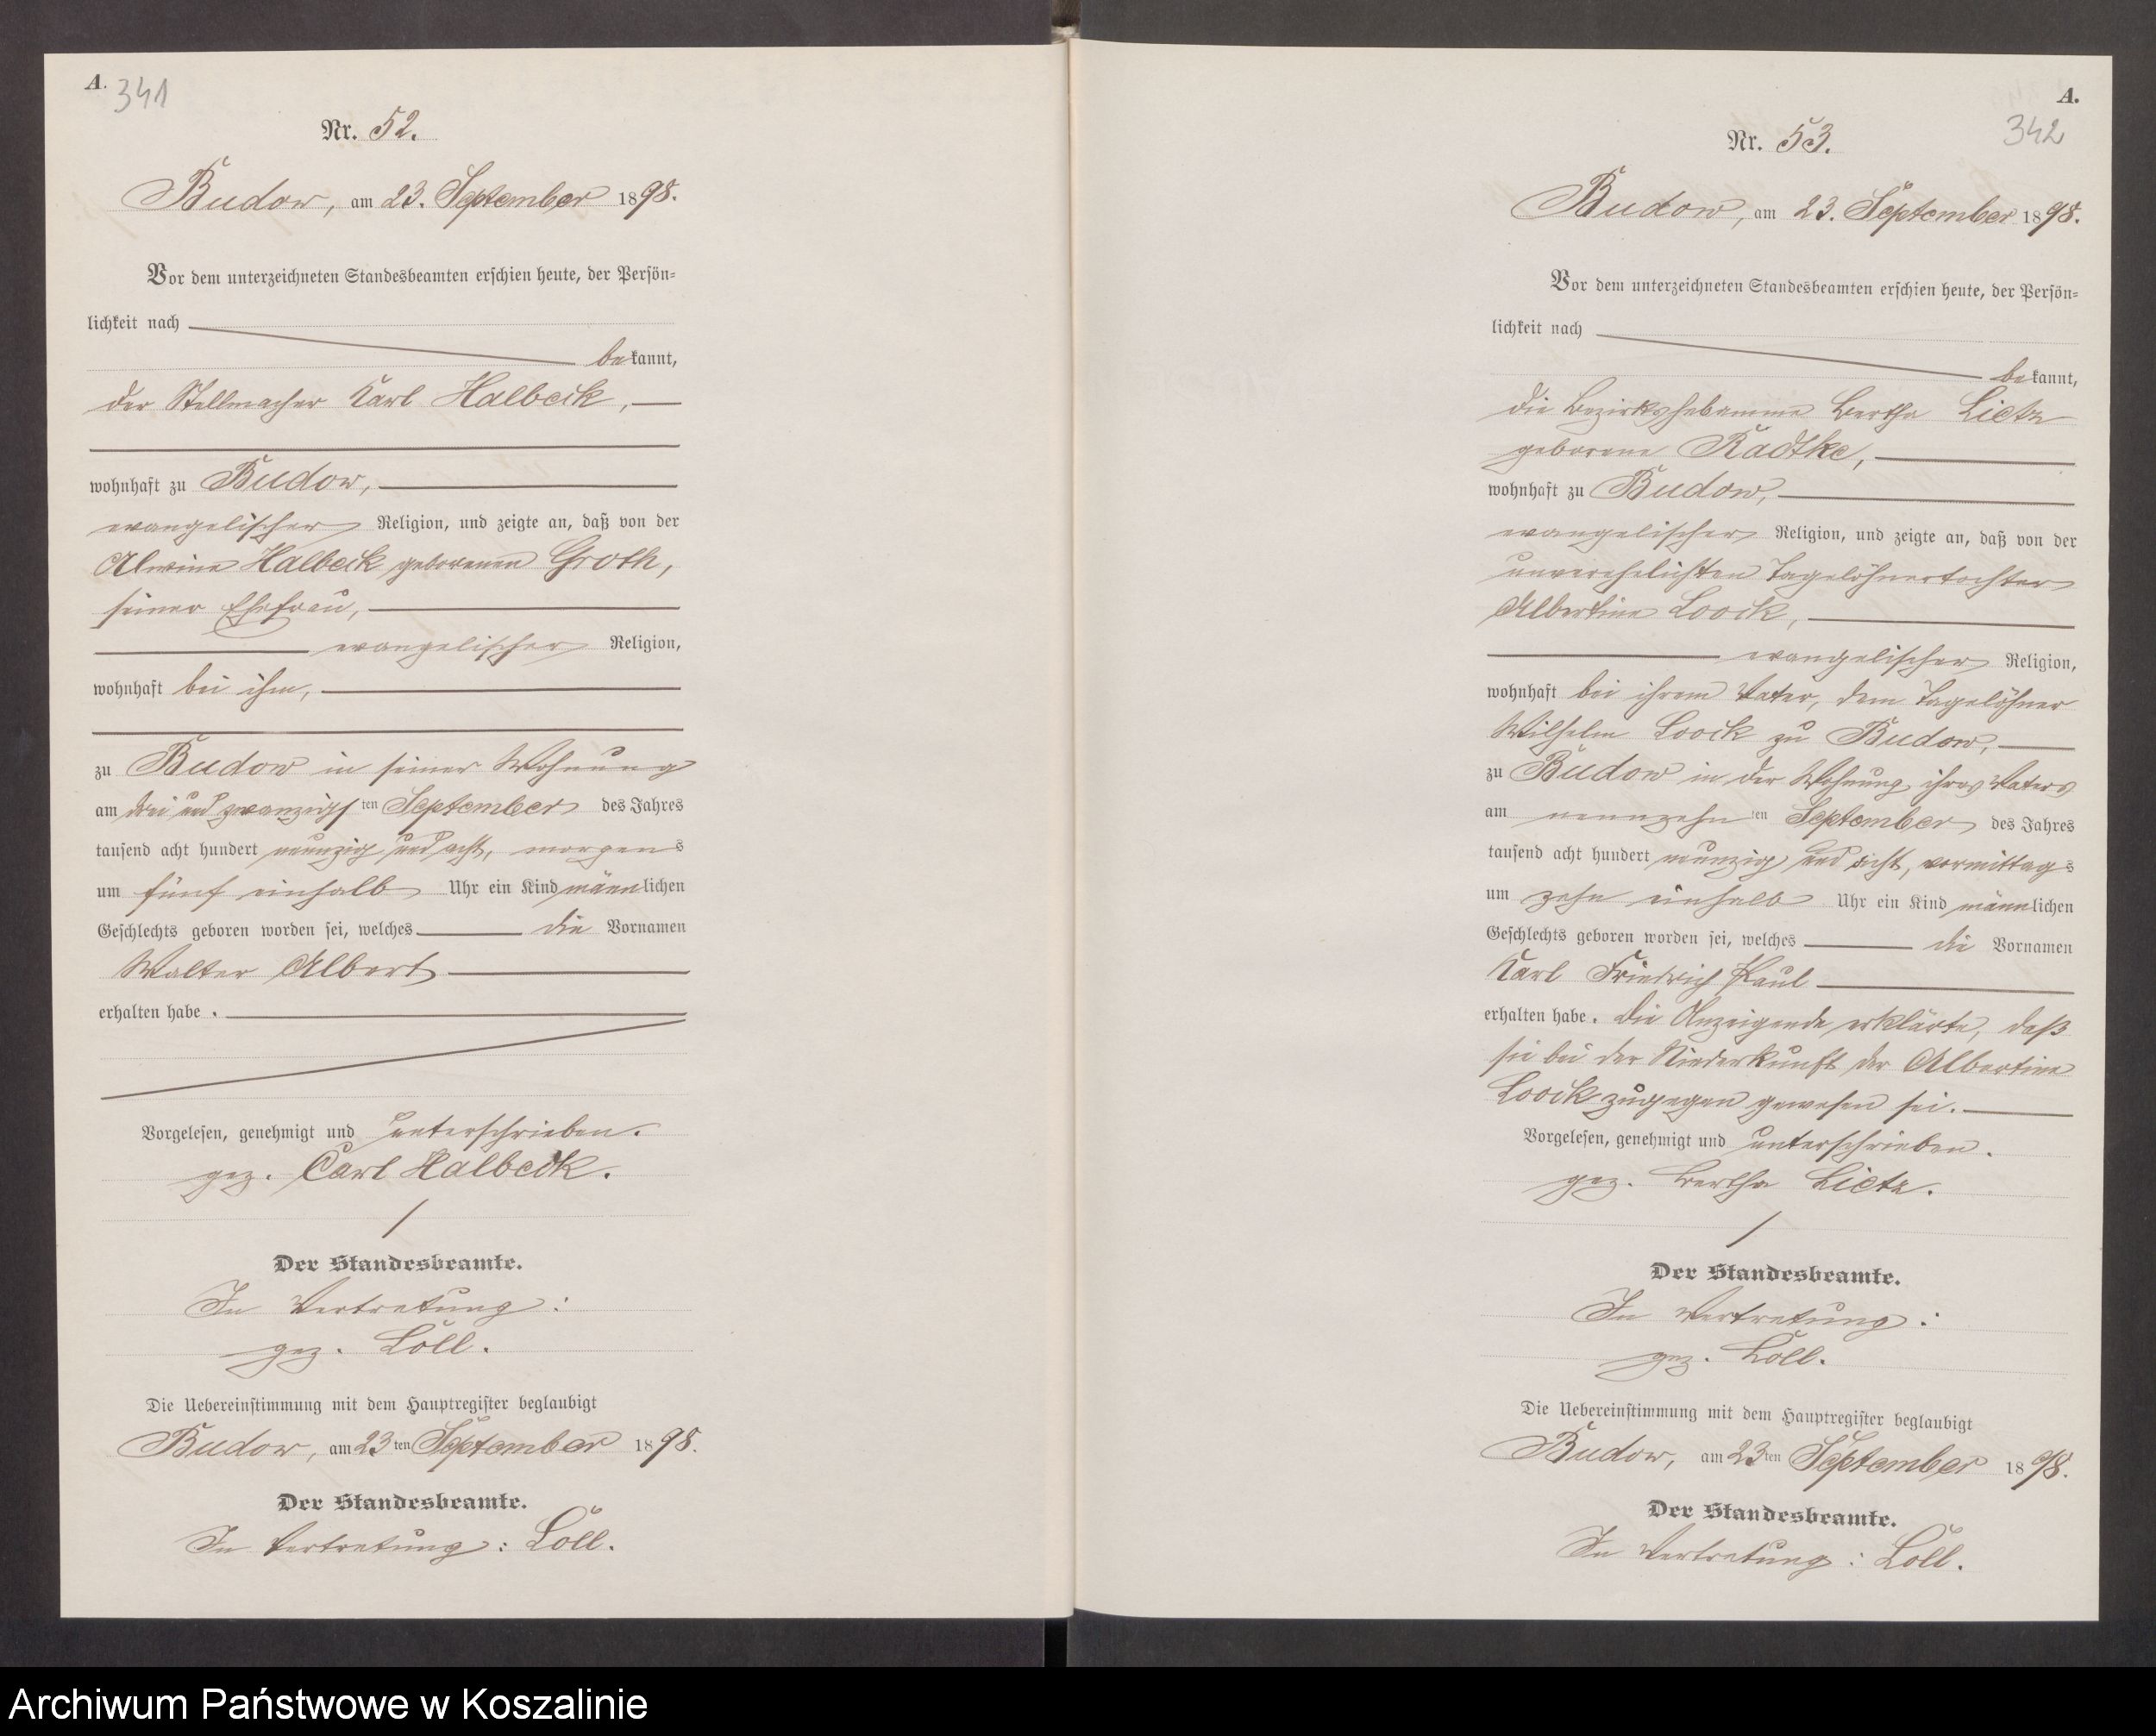 A. 341
Nr. 52.
Budow, am 23. September 1898.
Vor dem unterzeichneten Standesbeamten erschien heute, der Persön=
lichkeit nach
bekannt,
der Stellmacher Karl Halbeck,
wohnhaft zu Budow,
evangelischer Religion, und zeigte an, daß von der
Alwine Halbeck geborenen Groth,
seiner Ehefrau,
evangelischer Religion,
wohnhaft bei ihm,
zu Budow in seiner Wohnung
am drei und zwanzigsten September des Jahres
tausend acht hundert neunzig und acht, morgens
um fünf einhalb Uhr ein Kind männlichen
Geschlechts geboren worden sei, welches die Vornamen
Walter Albert
erhalten habe.
Vorgelesen, genehmigt und unterschrieben.
gez. Carl Halbeck.
Der Standesbeamte.
In Vertretung:
gez. Löll.
Die Uebereinstimmung mit dem Hauptregister beglaubigt
Budow, am 23ten September 1898.
Der Standesbeamte.
In Vertretung: Löll.
A.
342
Nr. 53.
Budow, am 23. September 1898.
Vor dem unterzeichneten Standesbeamten erschien heute, der Persön=
lichkeit nach
bekannt,
die Bezirkshebamme Bertha Lietz
geborene Radtke,
wohnhaft zu Budow,
evangelischer Religion, und zeigte an, daß von der
unverehelichten Tagelöhnertochter
Albertine Loock,
evangelischer Religion,
wohnhaft bei ihrem Vater, dem Tagelöhner
Wilhelm Loock zu Budow,
zu Budow in der Wohnung ihres Vaters
am neunzehnten September des Jahres
tausend acht hundert neunzig und acht, vormittags
um zehn einhalb Uhr ein Kind männlichen
Geschlechts geboren worden sei, welches die Vornamen
Karl Friedrich Paul
erhalten habe. Die Anzeigende erklärte, daß
sie bei der Niederkunft der Albertine
Loock zugegen gewesen sei.
Vorgelesen, genehmigt und unterschrieben.
gez. Bertha Lietz.
Der Standesbeamte.
In Vertretung:
gez. Löll.
Die Uebereinstimmung mit dem Hauptregister beglaubigt
Budow, am 23ten September 1898.
Der Standesbeamte.
In Vertretung: Löll.
Archiwum Państwowe w Koszalinie